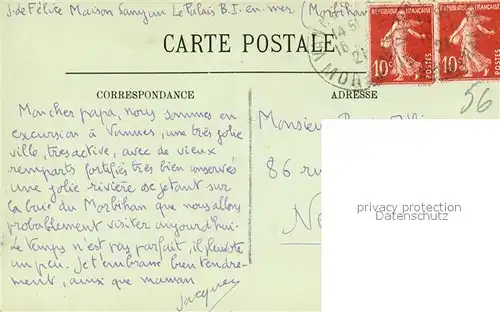 J. de Félice Maison Le Palais B.I. en mer (Morbihan
CARTE POSTALE
REPUBLIQUE FRANÇAISE
10c
POSTES
REPUBLIQUE FRANÇAISE
10c
POSTES
56
CORRESPONDANCE
ADRESSE
Mon cher papa, nous sommes en
excursion à Vannes, une très jolie
ville, très active, avec de vieux
remparts fortifiés très bien conservés
une jolie rivière se jetant sur
la baie du Morbihan que nous allons
probablement visiter aujourd'hui.
Le temps n'est pas parfait, il pleuvote
un peu. Je t'embrasse bien tendre-
ment, ainsi que maman.
Jacques
Monsieur
86 ru
privacy protection
Datenschutz